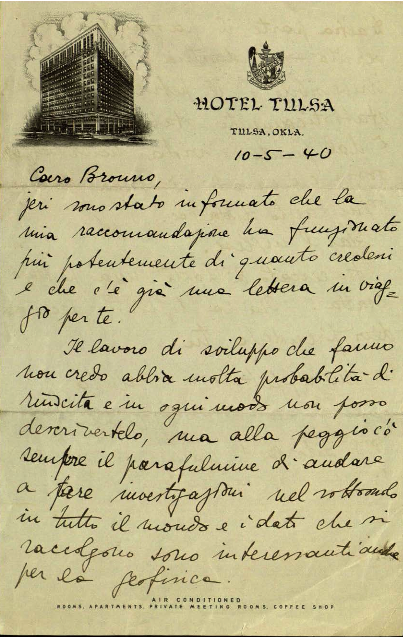 HOTEL TULSA
TULSA, OKLA.
10-5-40
Caro Brouno,
jeri sono stato informato che la
mia raccomandazione ha funzionato
più potentemente di quanto credessi
e che c'è già una lettera in viag=
gio per te.
Il lavoro di sviluppo che fanno
non credo abbia molta probabilità di
riuscita e in ogni modo non posso
descrivertelo, ma alla peggio c'è
sempre il parafulmine di andare
a fare investigazioni nel sottosuolo
in tutto il mondo e i dati che si
raccolgono sono interessanti anche
per la geofisica.
AIR CONDITIONED
ROOMS, APARTMENTS, PRIVATE MEETING ROOMS, COFFEE SHOP